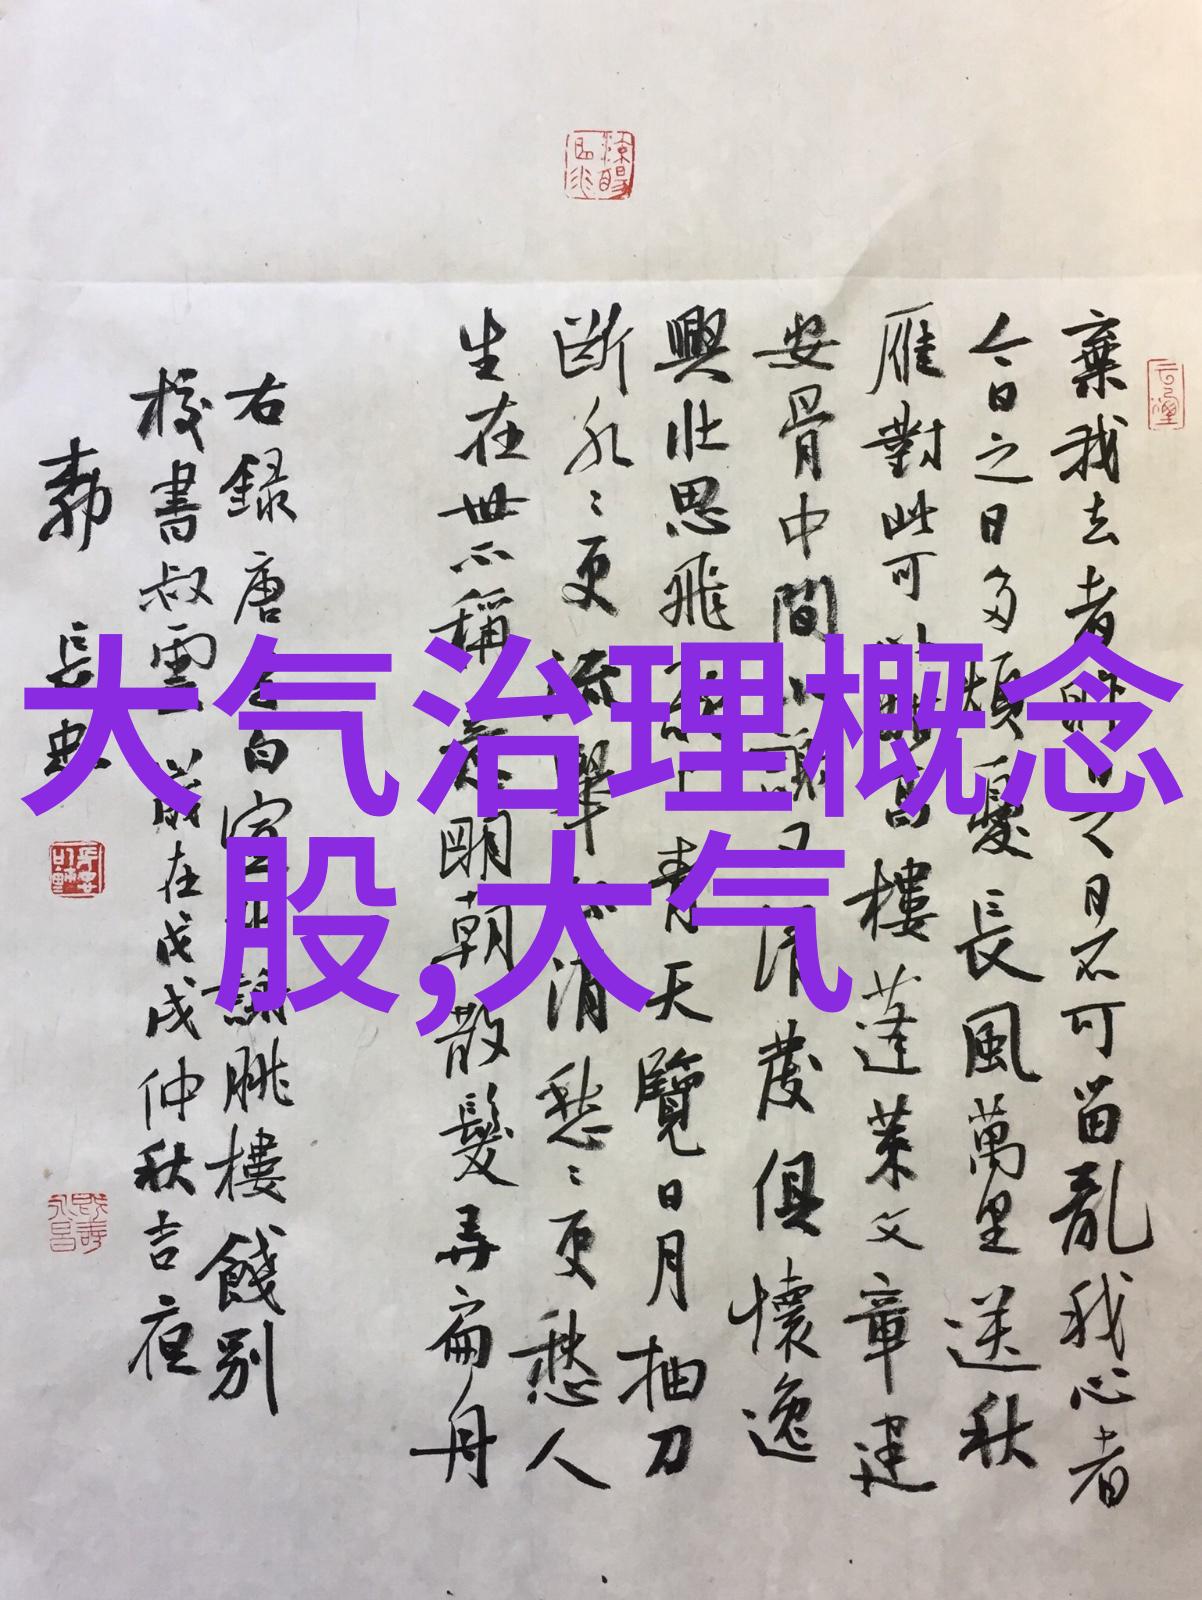 棄我去者昨日之日不可留亂我心者
今日之日多煩憂長風萬里送秋
雁對此可以酣高樓蓬萊文章建
安骨中間小謝又清發俱懷逸
興壯思飛欲上青天覽日月抽刀
斷水〻更流舉杯消愁〻更愁人
生在世不稱意明朝散髮弄扁舟
右録唐李白宣州謝朓樓餞別
校書叔雲 歲在戊戌仲秋吉夜
大气治理概念
股,大气